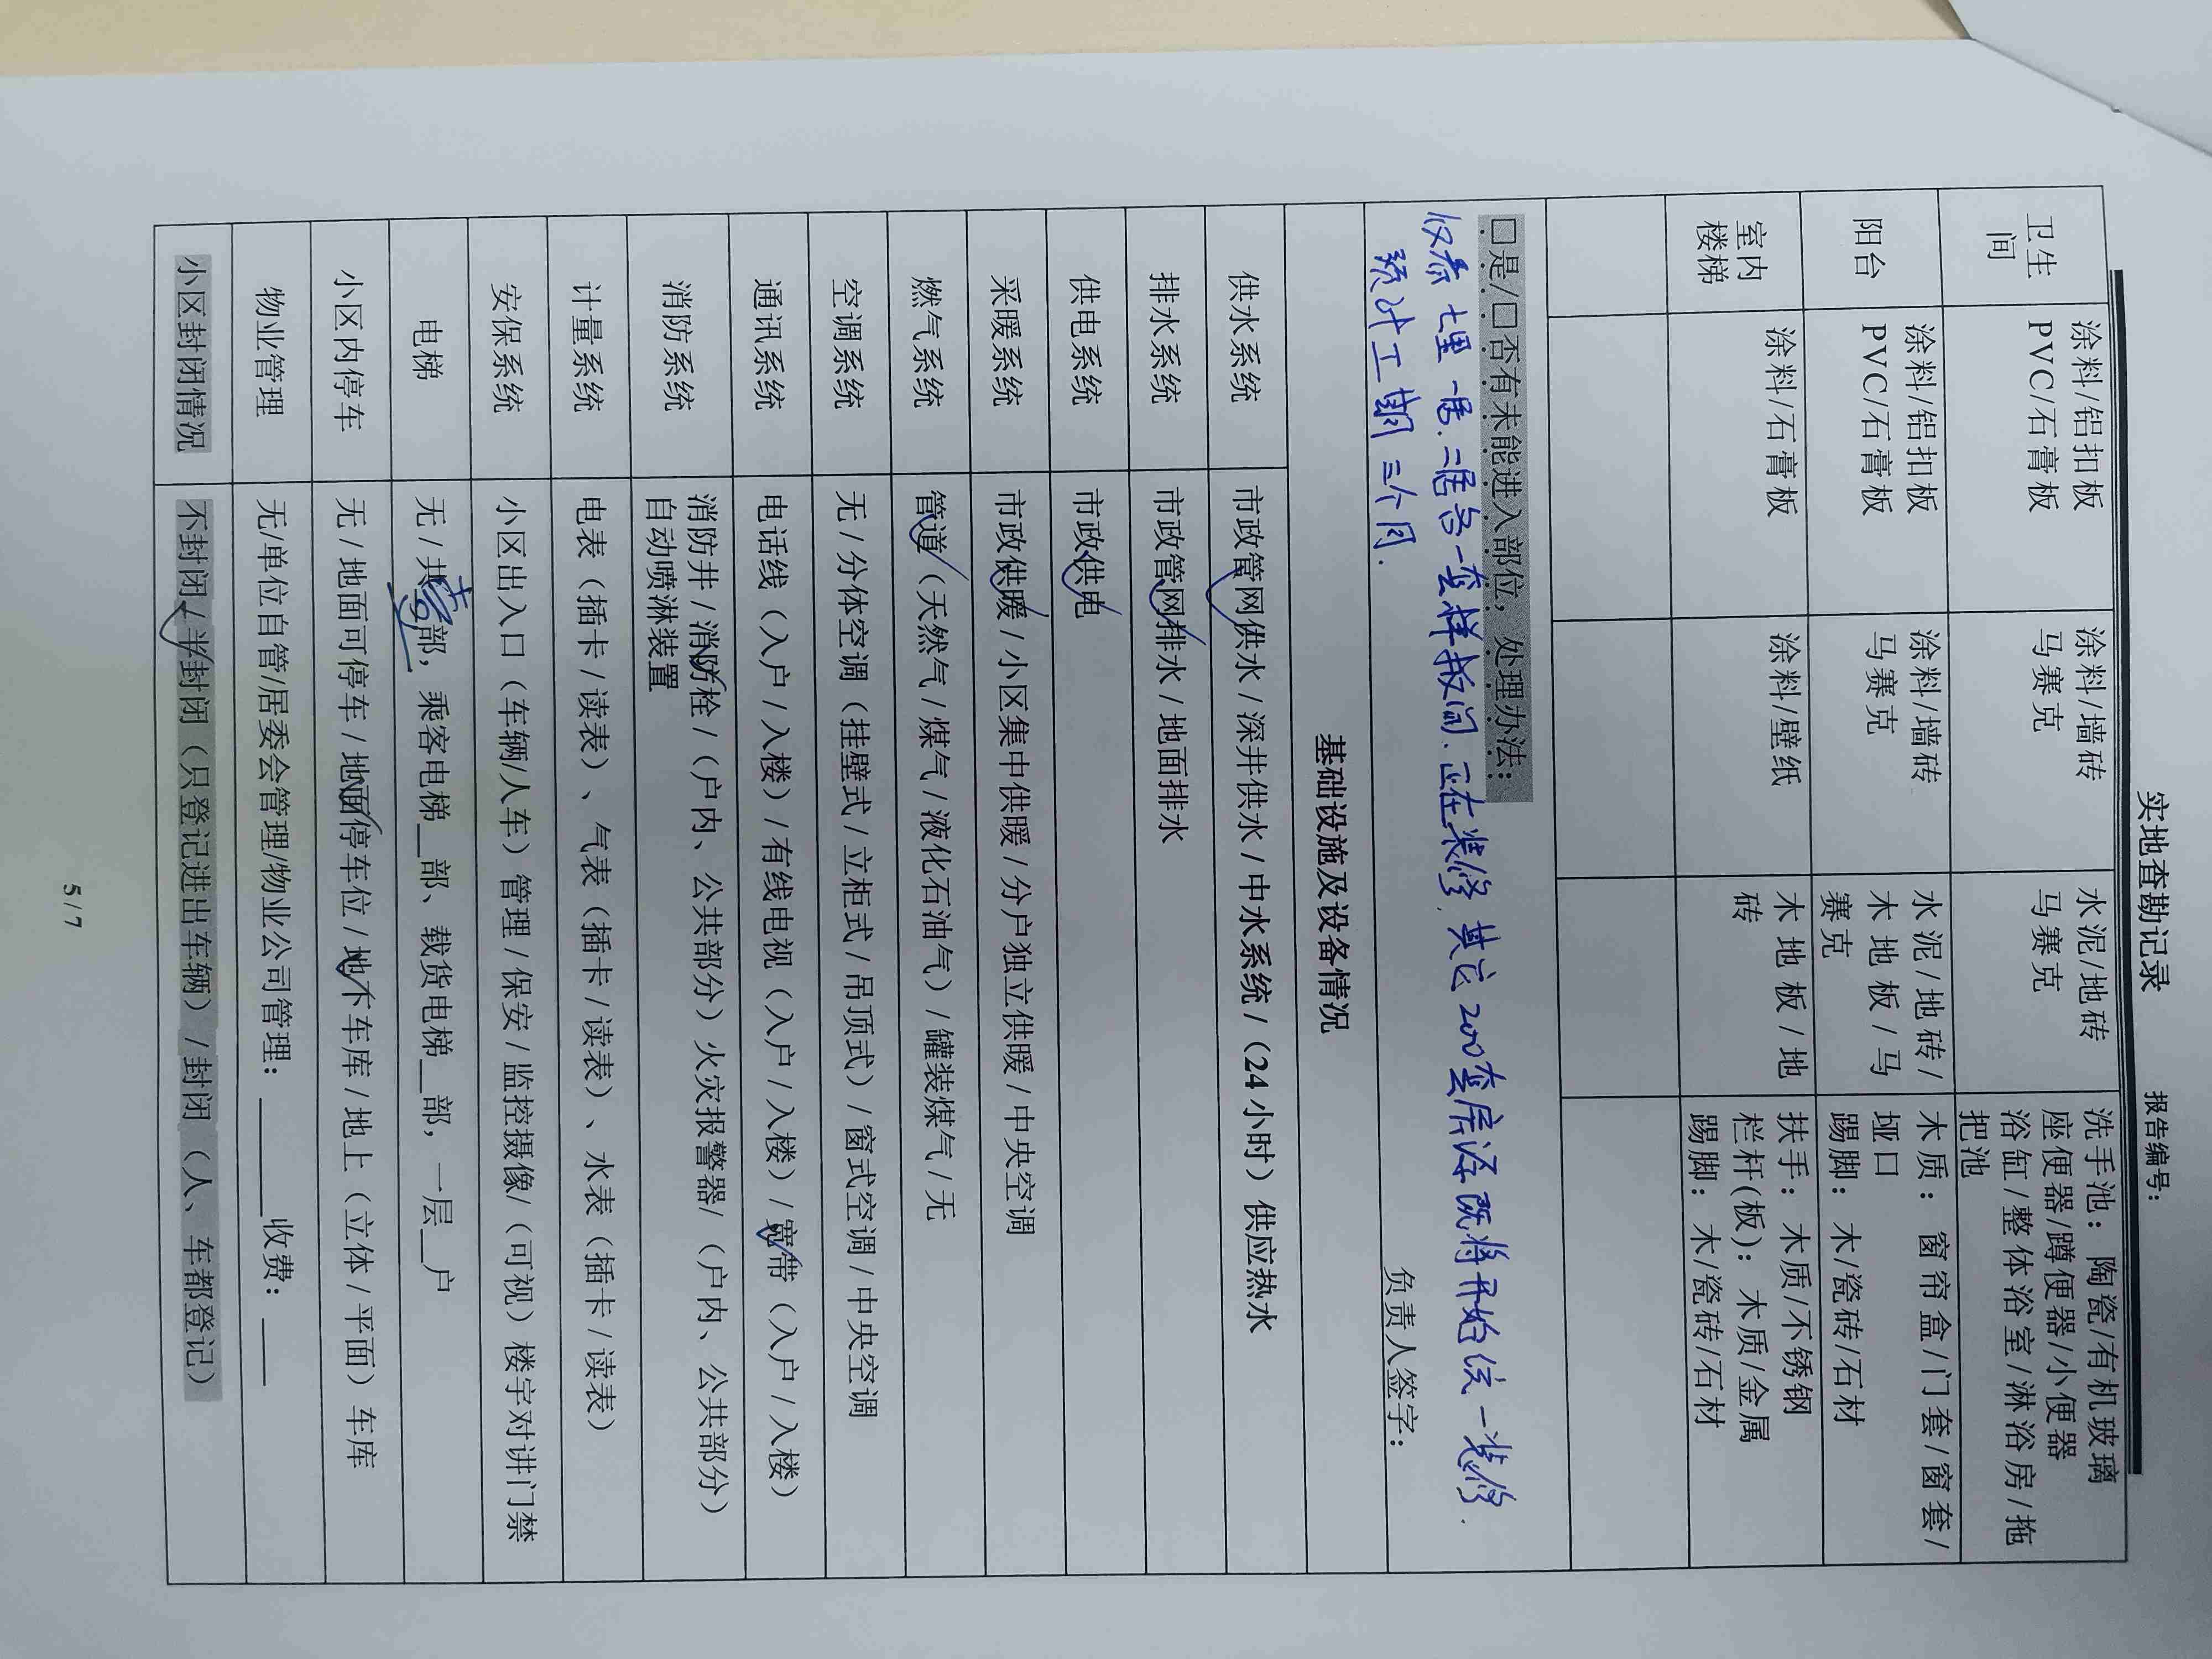 实地查勘记录
报告编号:
卫生间
涂料/铝扣板
PVC/石膏板
涂料/墙砖
马赛克
水泥/地砖
马赛克
洗手池：陶瓷/有机玻璃
座便器/蹲便器/小便器
浴缸/整体浴室/淋浴房/拖
把池
阳台
涂料/铝扣板
PVC/石膏板
涂料/墙砖
马赛克
水泥/地砖/
木地板/马
赛克
木质：窗帘盒/门套/窗套/
垭口
踢脚：木/瓷砖/石材
室内
楼梯
涂料/石膏板
涂料/壁纸
木地板/地
砖
扶手：木质/不锈钢
栏杆(板)：木质/金属
踢脚：木/瓷砖/石材
□是/□否有未能进入部位，处理办法：
一居、二居各一套样板间、正在装修，其它200套房源既将开始统一装修.
预计工期三个月.
负责人签字：
基础设施及设备情况
供水系统 市政管网供水/深井供水/中水系统/（24小时）供应热水
排水系统 市政管网排水/地面排水
供电系统 市政供电
采暖系统 市政供暖/小区集中供暖/分户独立供暖/中央空调
燃气系统 管道（天然气/煤气/液化石油气）/罐装煤气/无
空调系统 无/分体空调（挂壁式/立柜式/吊顶式）/窗式空调/中央空调
通讯系统 电话线（入户/入楼）/有线电视（入户/入楼）/宽带（入户/入楼）
消防系统 消防井/消防栓/（户内、公共部分）火灾报警器/（户内、公共部分）
自动喷淋装置
计量系统 电表（插卡/读表）、气表（插卡/读表）、水表（插卡/读表）
安保系统 小区出入口（车辆/人车）管理/保安/监控摄像/（可视）楼宇对讲门禁
电梯 无/共 部，乘客电梯__部、载货电梯__部，一层__户
小区内停车 无/地面可停车/地面停车位/地下车库/地上（立体/平面）车库
物业管理 无/单位自管/居委会管理/物业公司管理：________收费：____
小区封闭情况 不封闭/半封闭（只登记进出车辆）/封闭（人、车都登记）
5/7